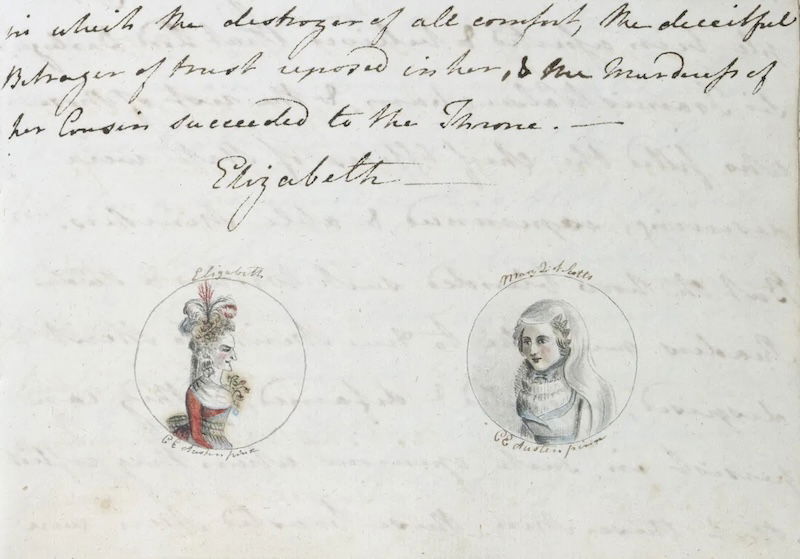 in which the destroyer of all comfort, the deceitful
Betrayer of trust reposed in her, & the Murdress of
her Cousin succeeded to the Throne. —
Elizabeth —
Elizabeth
Mary Q. of Scotts
CE Austen pinx
CE Austen pinx